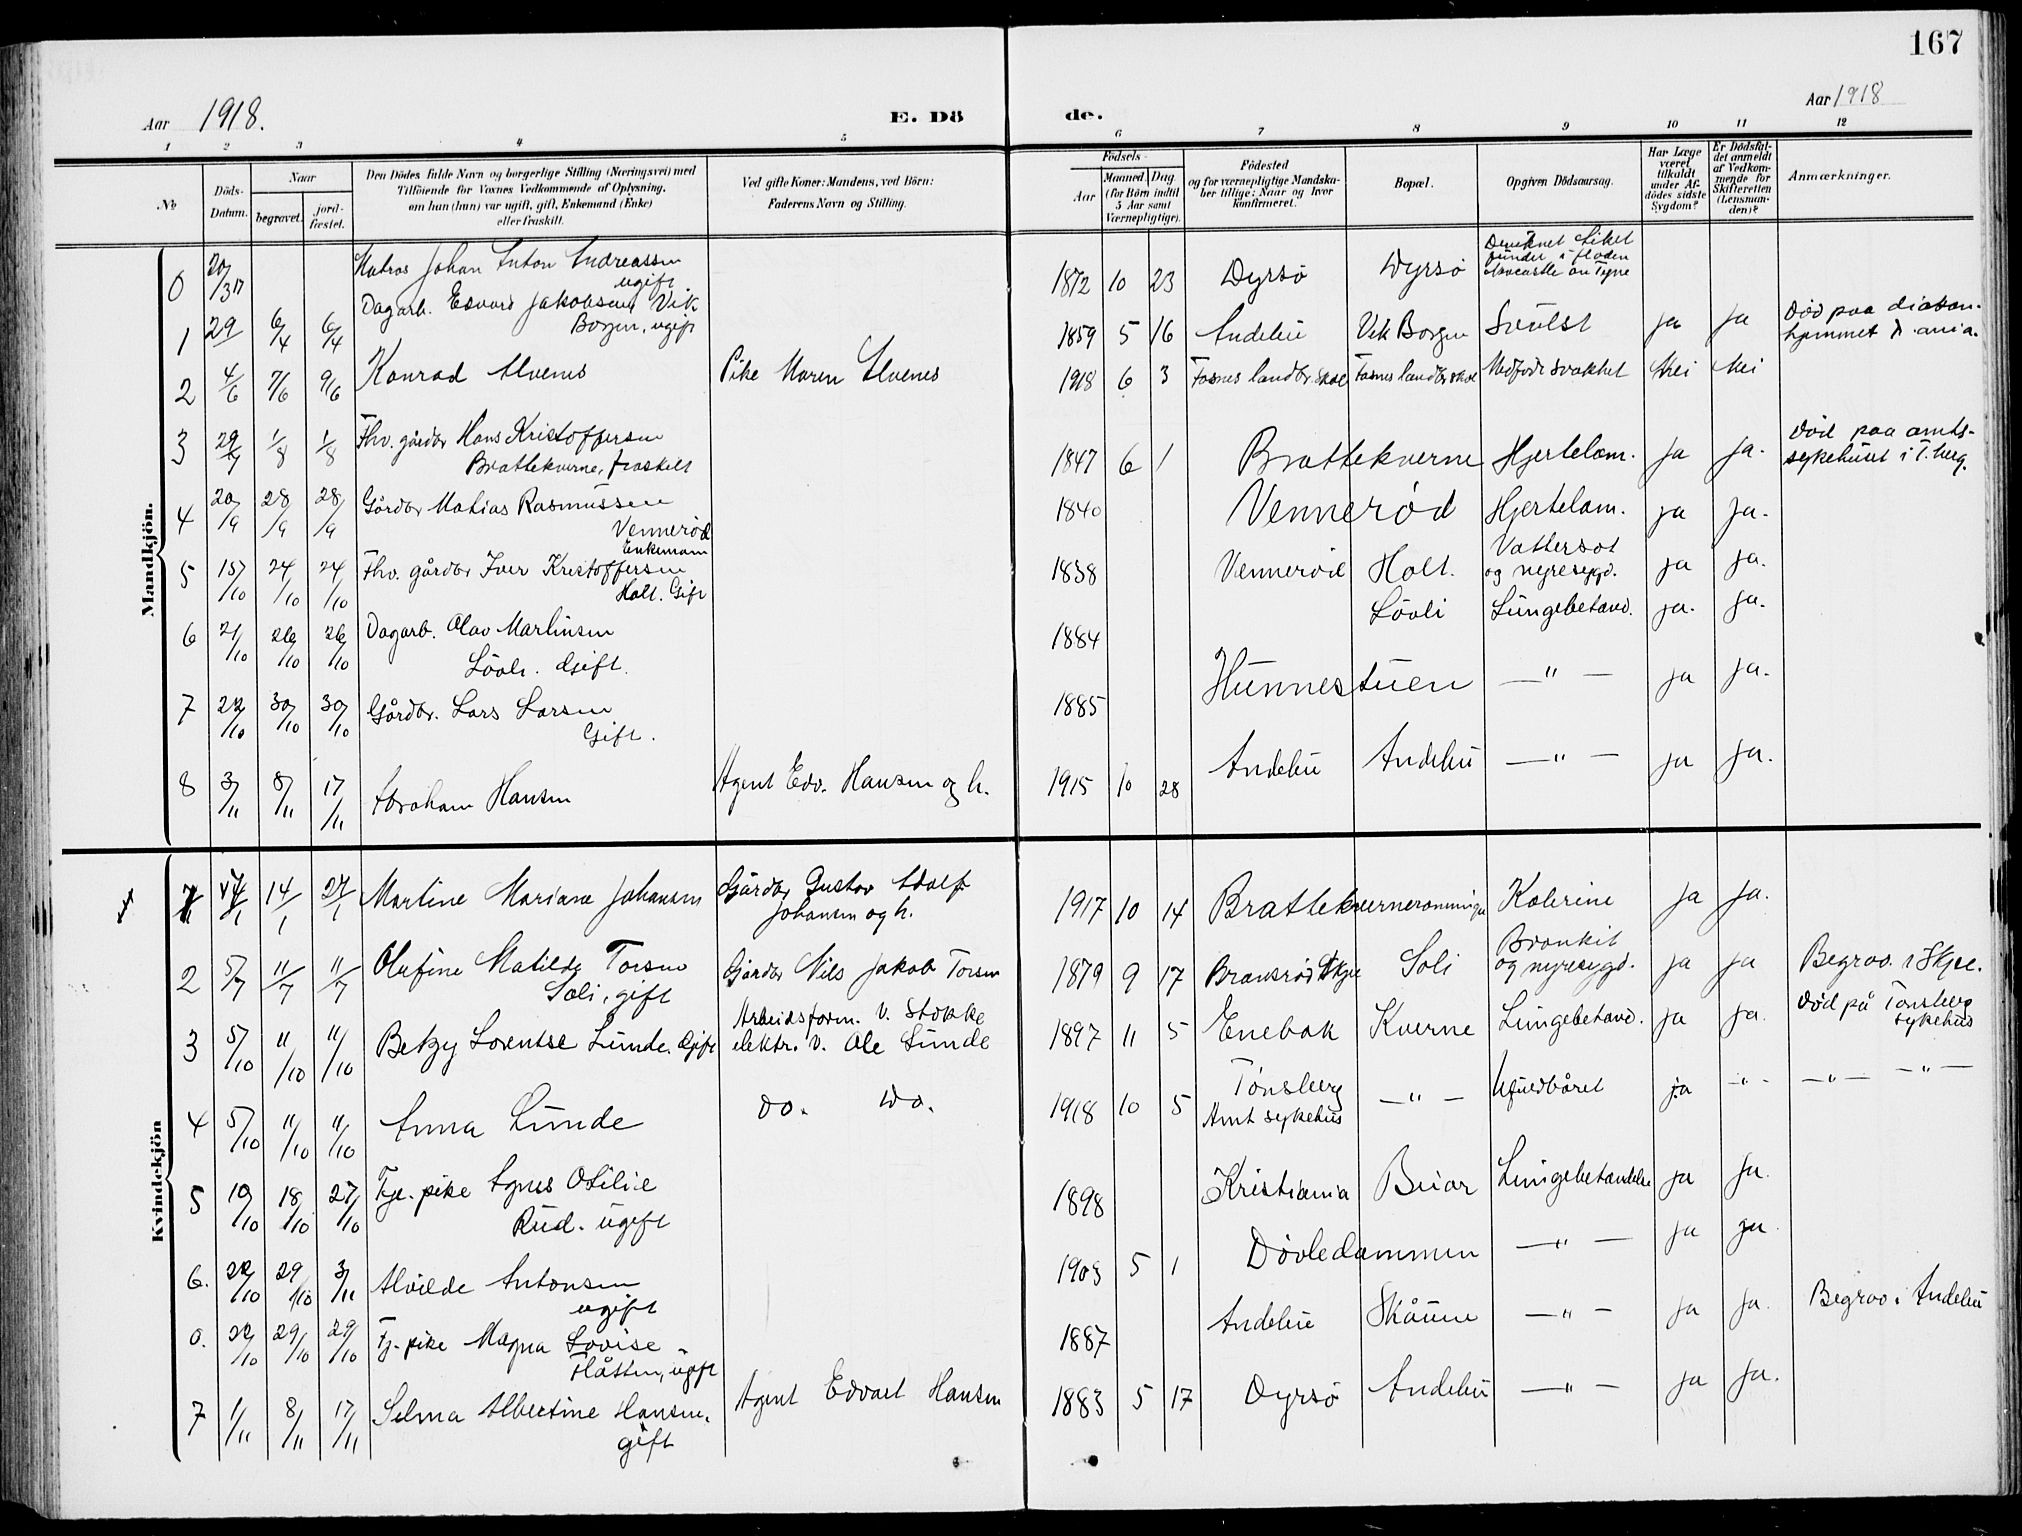 167
Aar 1918.
E. Dö de.
Aar 1918
1 2 3 4 5 6 7 8 9 10 11 12
№
Döds-Datum.
Naar
begravet.
jord-fæstet.
Den Dödes fulde Navn og borgerlige Stilling (Næringsvei) med
Tilföiende for Voxnes Vedkommende af Oplysning,
om han (hun) var ugift, gift, Enkemand (Enke)
eller fraskilt.
Ved gifte Koner: Mandens, ved Börn:
Faderens Navn og Stilling.
Födsels-
Aar
Maaned. Dag.
(for Börn indtil
5 Aar samt
Værnepligtige).
Födested
og for værnepligtige Mandska-
ber tillige: Naar og hvor
konfirmeret.
Bopæl.
Opgiven Dödsaarsag.
Har Læge
været
tilkaldt
under Af-
dödes sidste
Sygdom?
Er Dödsfal-
det anmeldt
af Vedkom-
mende for
Skifteretten
(Lensman-
den)?
Anmærkninger.
Mandkjön.
0 20/3 17 Matros Johan Anton Andreassen ugift 1872 10 23 Dyrsø Dyrsø Druknet Liket funder i floden Newcastle on Tyne
1 29/ 6/4 6/4 Dagarb. Edvard Jakobsen Vik Borgen, ugift 1859 5 16 Andebu Vik Borgen Svulst ja ja Död paa diakon-hjemmet Kr.ania.
2 4/6 7/6 9/6 Konrad Alvenes Pike Maren Alvenes 1918 6 3 Fosnes landbr. skole Fosnes landbr skole Medfödt svakhet Nei Nei
3 29/7 1/8 1/8 Fhv. gårdbr Hans Kristoffersen Brattekverne, fraskilt 1847 6 1 Brattekverne Hjertelam. ja ja. Död paa amts-sykehuset i T.berg.
4 20/9 28/9 28/9 Gårdbr Matias Rasmussen Vennerød Enkemann 1840 Vennerød Hjertelam. ja ja.
5 15/10 24/10 24/10 Fhv. gårdbr Iver Kristoffersen Holt. Gift 1838 Vennerød Holt. Vattersot og nyresygd. ja ja.
6 21/10 26/10 26/10 Dagarb. Olav Martinsen Lövli. Gift. 1884 Lövli Lungebetænd. ja. ja.
7 22/10 30/10 30/10 Gårdbr. Lars Larsen Gift. 1885 Hunnestuen — " — ja ja.
8 3/11 8/11 17/11 Abraham Hansen Agent Edv. Hansen og h. 1915 10 28 Andebu Andebu — " — ja ja.
Kvindekjön
1 4/1 14/1 27/1 Martine Mariane Johansen Gårdbr Gustav Adolf Johansen og h. 1917 10 14 Brattekverne Kolerine ja ja.
2 5/7 11/7 11/7 Olufine Matilde Torsen Soli, gift Gårdbr Nils Jakob Torsen 1879 9 17 Soli Bronkit og nyresygd. ja ja Begrav. i Skjee.
3 5/10 11/10 11/10 Betzy Lorentse Lunde. Gift Arbeidsform. v. Stokke elektr. v. Ole Lunde 1897 11 5 Enebak Kverne Lungebetænd. ja ja. Död på Tönsberg sykehus
4 5/10 11/10 11/10 Anna Lunde do. do. 1918 10 5 Tönsberg Amt sykehus — " — Ufuldbåret ja — " — — " — — " —
5 10/10 18/10 27/10 Tje. pike Agnes Otilie Rud. ugift 1898 Kristiania Buar Lungebetændelse ja ja.
6. 22/10 29/10 3/11 Alvilde Antonsen ugift 1903 5 1 Døvledammen — " — ja ja.
0. 22/10 29/10 29/10 Tj. pike Magna Lovise Flåtten, ugift 1887 Andebu Skåune — " — ja ja. Begrav i Andebu
7 1/11 8/11 17/11 Selma Albertine Hansen. gift Agent Edvart Hansen 1883 5 17 Dyrsø Andebu — " — ja ja.